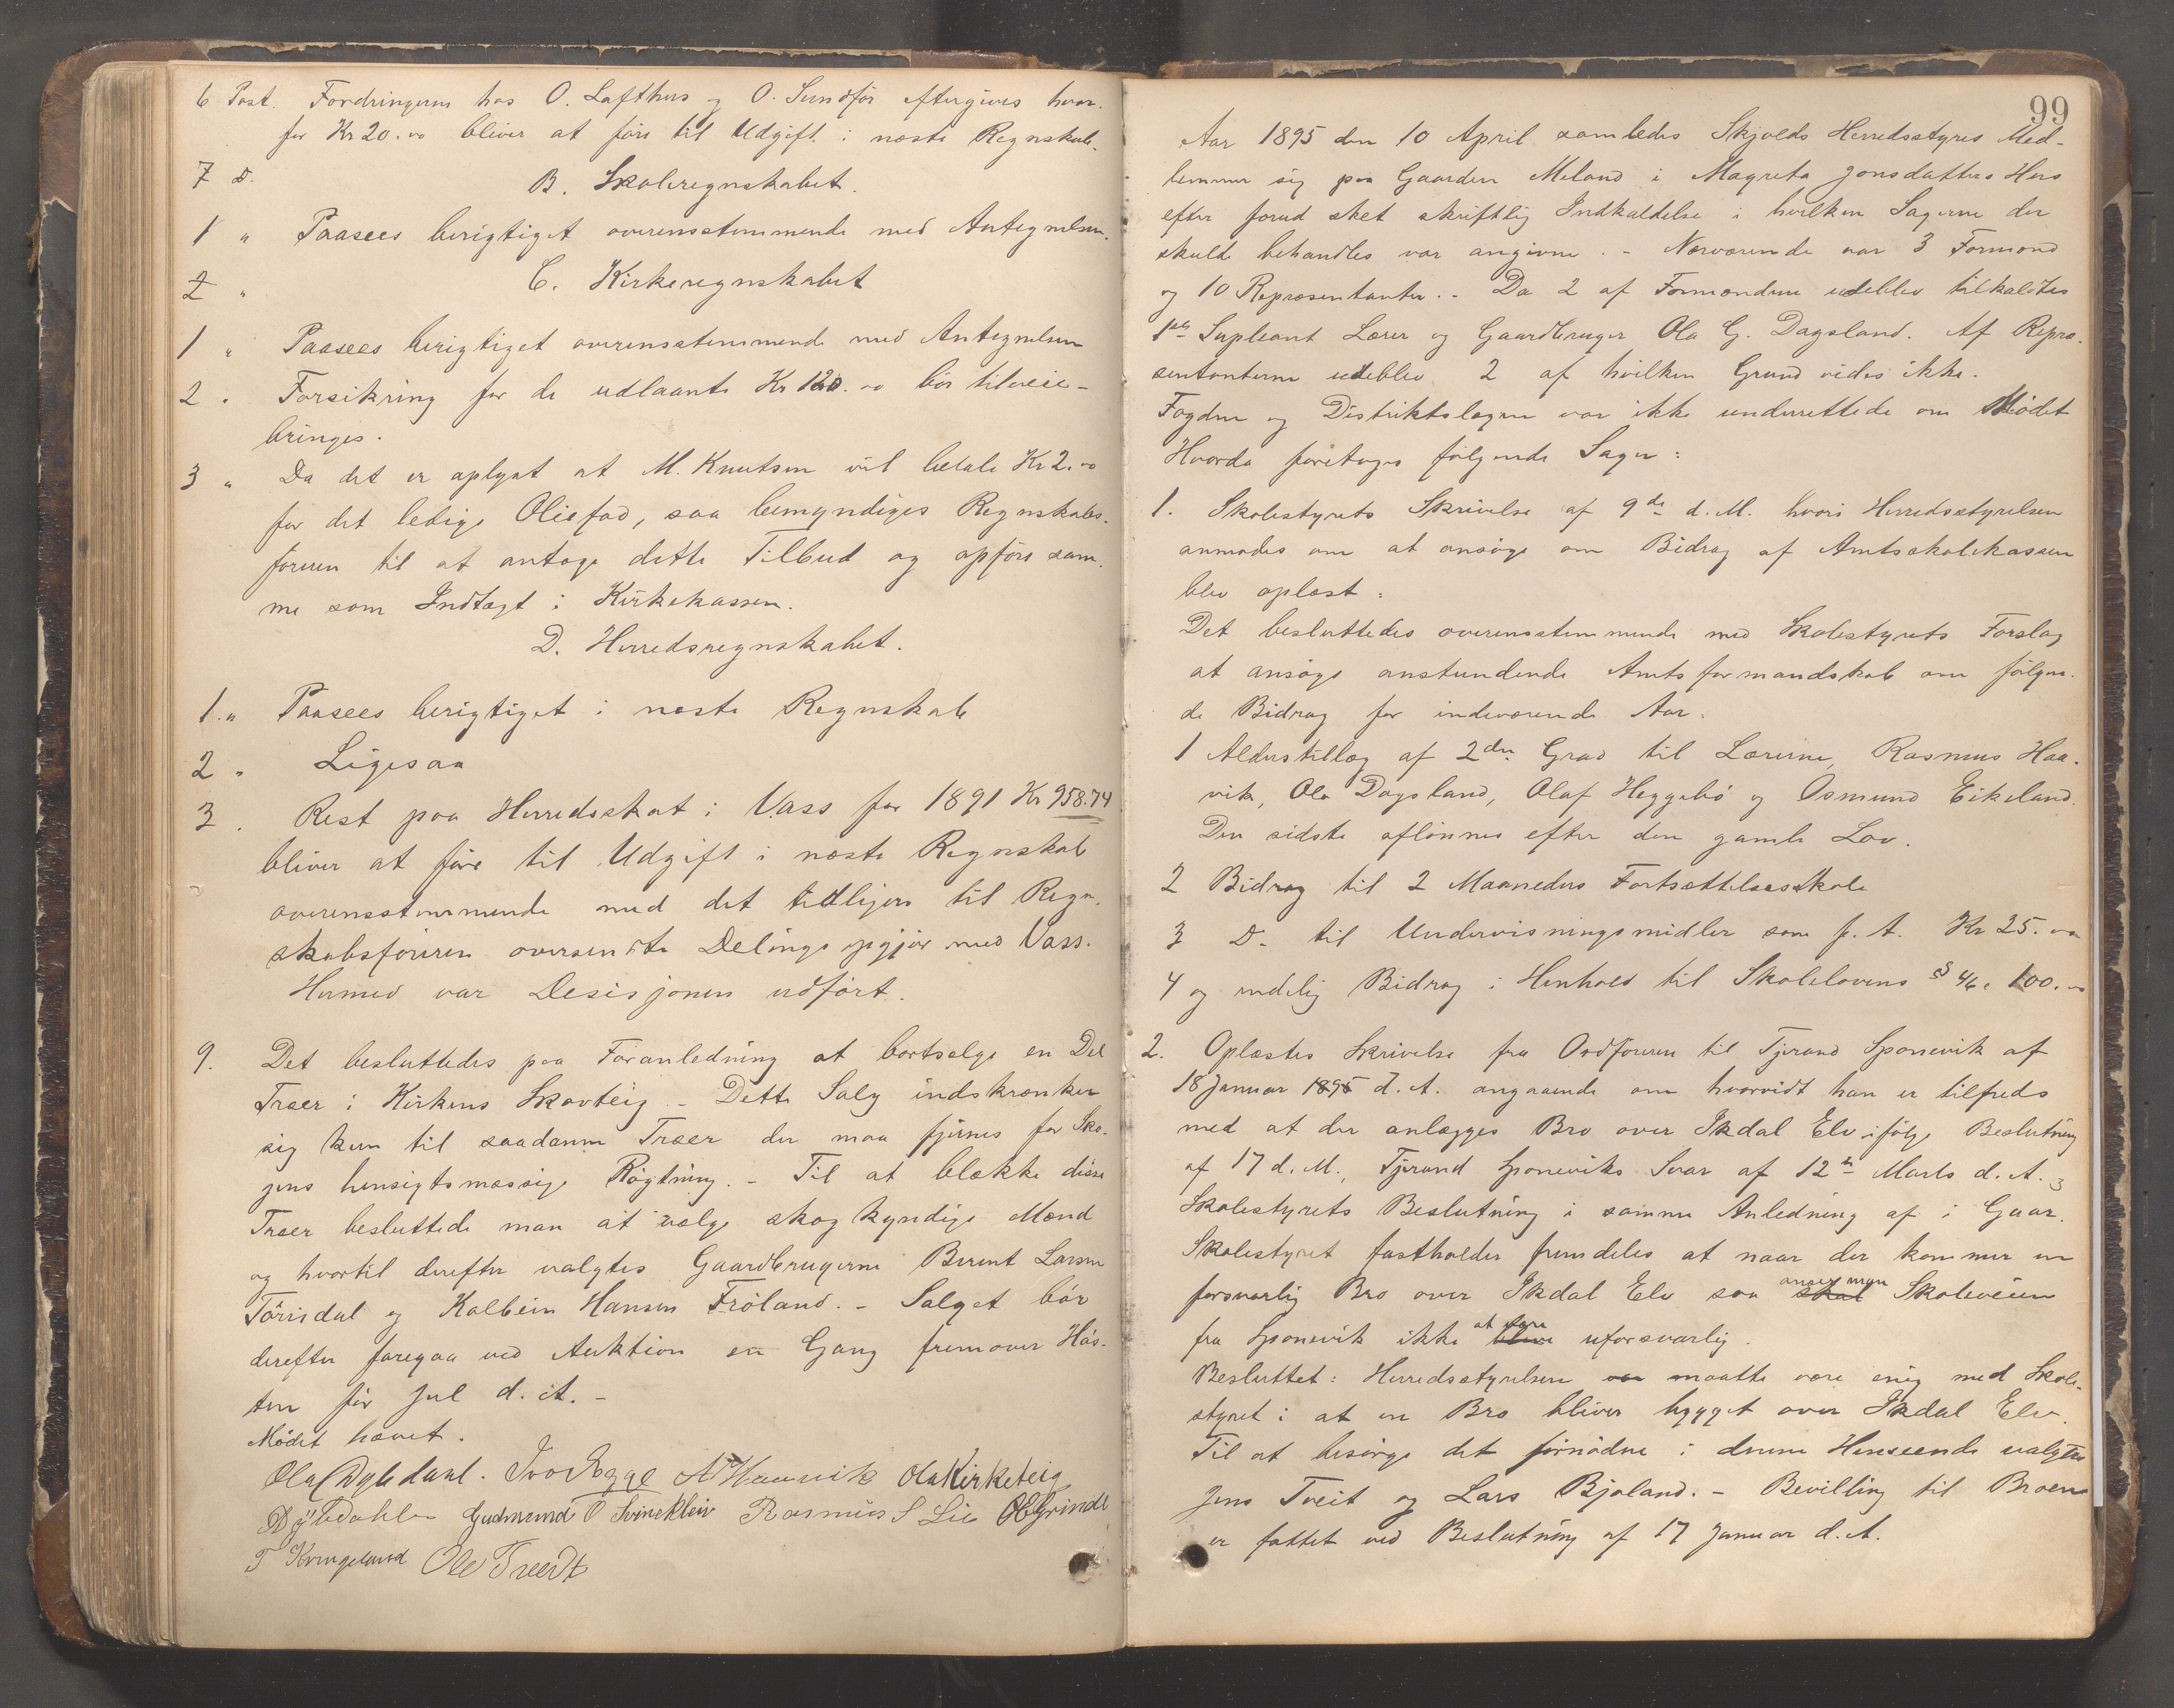 6 Post. Fordringerne hos O. Lofthus og O. Sundför eftergives hvor-
for Kr 20.00 bliver at före til Udgift i næste Regnskab.
7 D.
B. Skoleregnskabet.
1 " Paasees berigtiget overensstemmende med Antegnelsen.
2 "
C. Kirkeregnskabet
1 " Paasees berigtiget overensstemmende med Antegnelsen
2 " Forsikring for de udlaante Kr 120.00 bör tilveie-
bringes.
3 " Da det er oplyst at M. Knutsen vil betale Kr 2.00
for det ledige Oliefad, saa bemyndiges Regnskabs-
föreren til at antage dette Tilbud og opföre sam-
me som Indtægt i Kirkekassen.
D. Herredsregnskabet.
1. " Paasees berigtiget i næste Regnskab
2 " Ligesaa
3 . Rest paa Herredsskat i Vass for 1891 Kr 958.74
bliver at före til Udgift i næste Regnskab
overensstemmende med det tidligere til Regn-
skabsföreren oversendte Delingsopgjör med Vass.
Hermed var Desisjonen udfört.
9. Det besluttedes paa Foranledning at bortsælge en Del
Træer i Kirkens Skovteig. - Dette Salg indskrænker
sig kun til saadanne Træer der maa fjernes for Sko-
gens hensigtsmæssige Rögtning. - Til at blække disse
Træer besluttede man at vælge skogkyndige Mænd
og hvortil derefter valgtes Gaardbrugerne Berent Larsen
Törisdal og Kolbein Hansen Fröland. - Salget bör
derefter foregaa ved Auktion en Gang fremover Hös-
ten för Jul d. A. -
Mödet hævet.
Ola Dybdahl. Ivar A. Haavik Ola Kirketeig
Dybdahl Gudmund O Svinekleiv Rasmus S Lie O Grinde
T Kringeland Ole Tveedt
99
Aar 1895 den 10 April samledes Skjolds Herredsstyres Med-
lemmer sig paa Gaarden Meland i Magreta Jonsdatters Hus
efter forud sket skriftlig Indkaldelse i hvilken Sagerne der
skulde behandles var angivne. - Nærværende var 3 Formænd
og 10 Repræsentanter. - Da 2 af Formændene udeblev tilkaldtes
1ste Supleant Lærer og Gaardbruger Ola G. Dagsland. Af Repræ-
sentanterne udeblev 2 af hvilken Grund vides ikke.
Fogden og Distriktslægen var ikke underrettede om Mödet
Hvorda foretages fölgende Sager:
1. Skolestyrets Skrivelse af 9de d. M. hvori Herredsstyrelsen
anmodes om at ansöge om Bidrag af Amtsskolekassen
blev oplæst:
Det besluttedes overensstemmende med Skolestyrets Forslag
at ansöge anstundende Amtsformandskab om fölgen-
de Bidrag for indeværende Aar.
1 Alderstillæg af 2den Grad til Lærerne, Rasmus Haa-
vik, Ola Dagsland, Olaf Heggebö og Osmund Eikeland.
Den sidste aflönnes efter den gamle Lov.
2 Bidrag til 2 Maaneders Fortsættelsesskole
3 D- til Undervisningsmidler som f. A. Kr 25.00
4 og endelig Bidrag i Henhold til Skolelovens § 100.00
2. Oplæstes Skrivelse fra Ordföreren til Tjerand Sponevik af
18 Januar 1895 d. A. angaaende om hvorvidt han er tilfreds
med at der anlægges Bro over Ikdal Elv ifölge Beslutning
af 17 d. M., Tjerand Sponeviks Svar af 12te Marts d. A. og
Skolestyrets Beslutning i samme Anledning af i Gaar.
Skolestyret fastholder fremdeles at naar der kommer en
forsvarlig Bro over Ikdal Elv saa skal anser man Skoleveien
fra Sponevik ikke blive at være uforsvarlig.
Besluttet: Herredsstyrelsen var maatte være enig med Skole-
styret i at en Bro bliver bygget over Ikdal Elv.
Til at besörge det fornödne i denne Henseende valgtes
Jens Tveit og Lars Bjoland. - Bevilling til Broen
er fattet ved Beslutning af 17 Januar d. A.